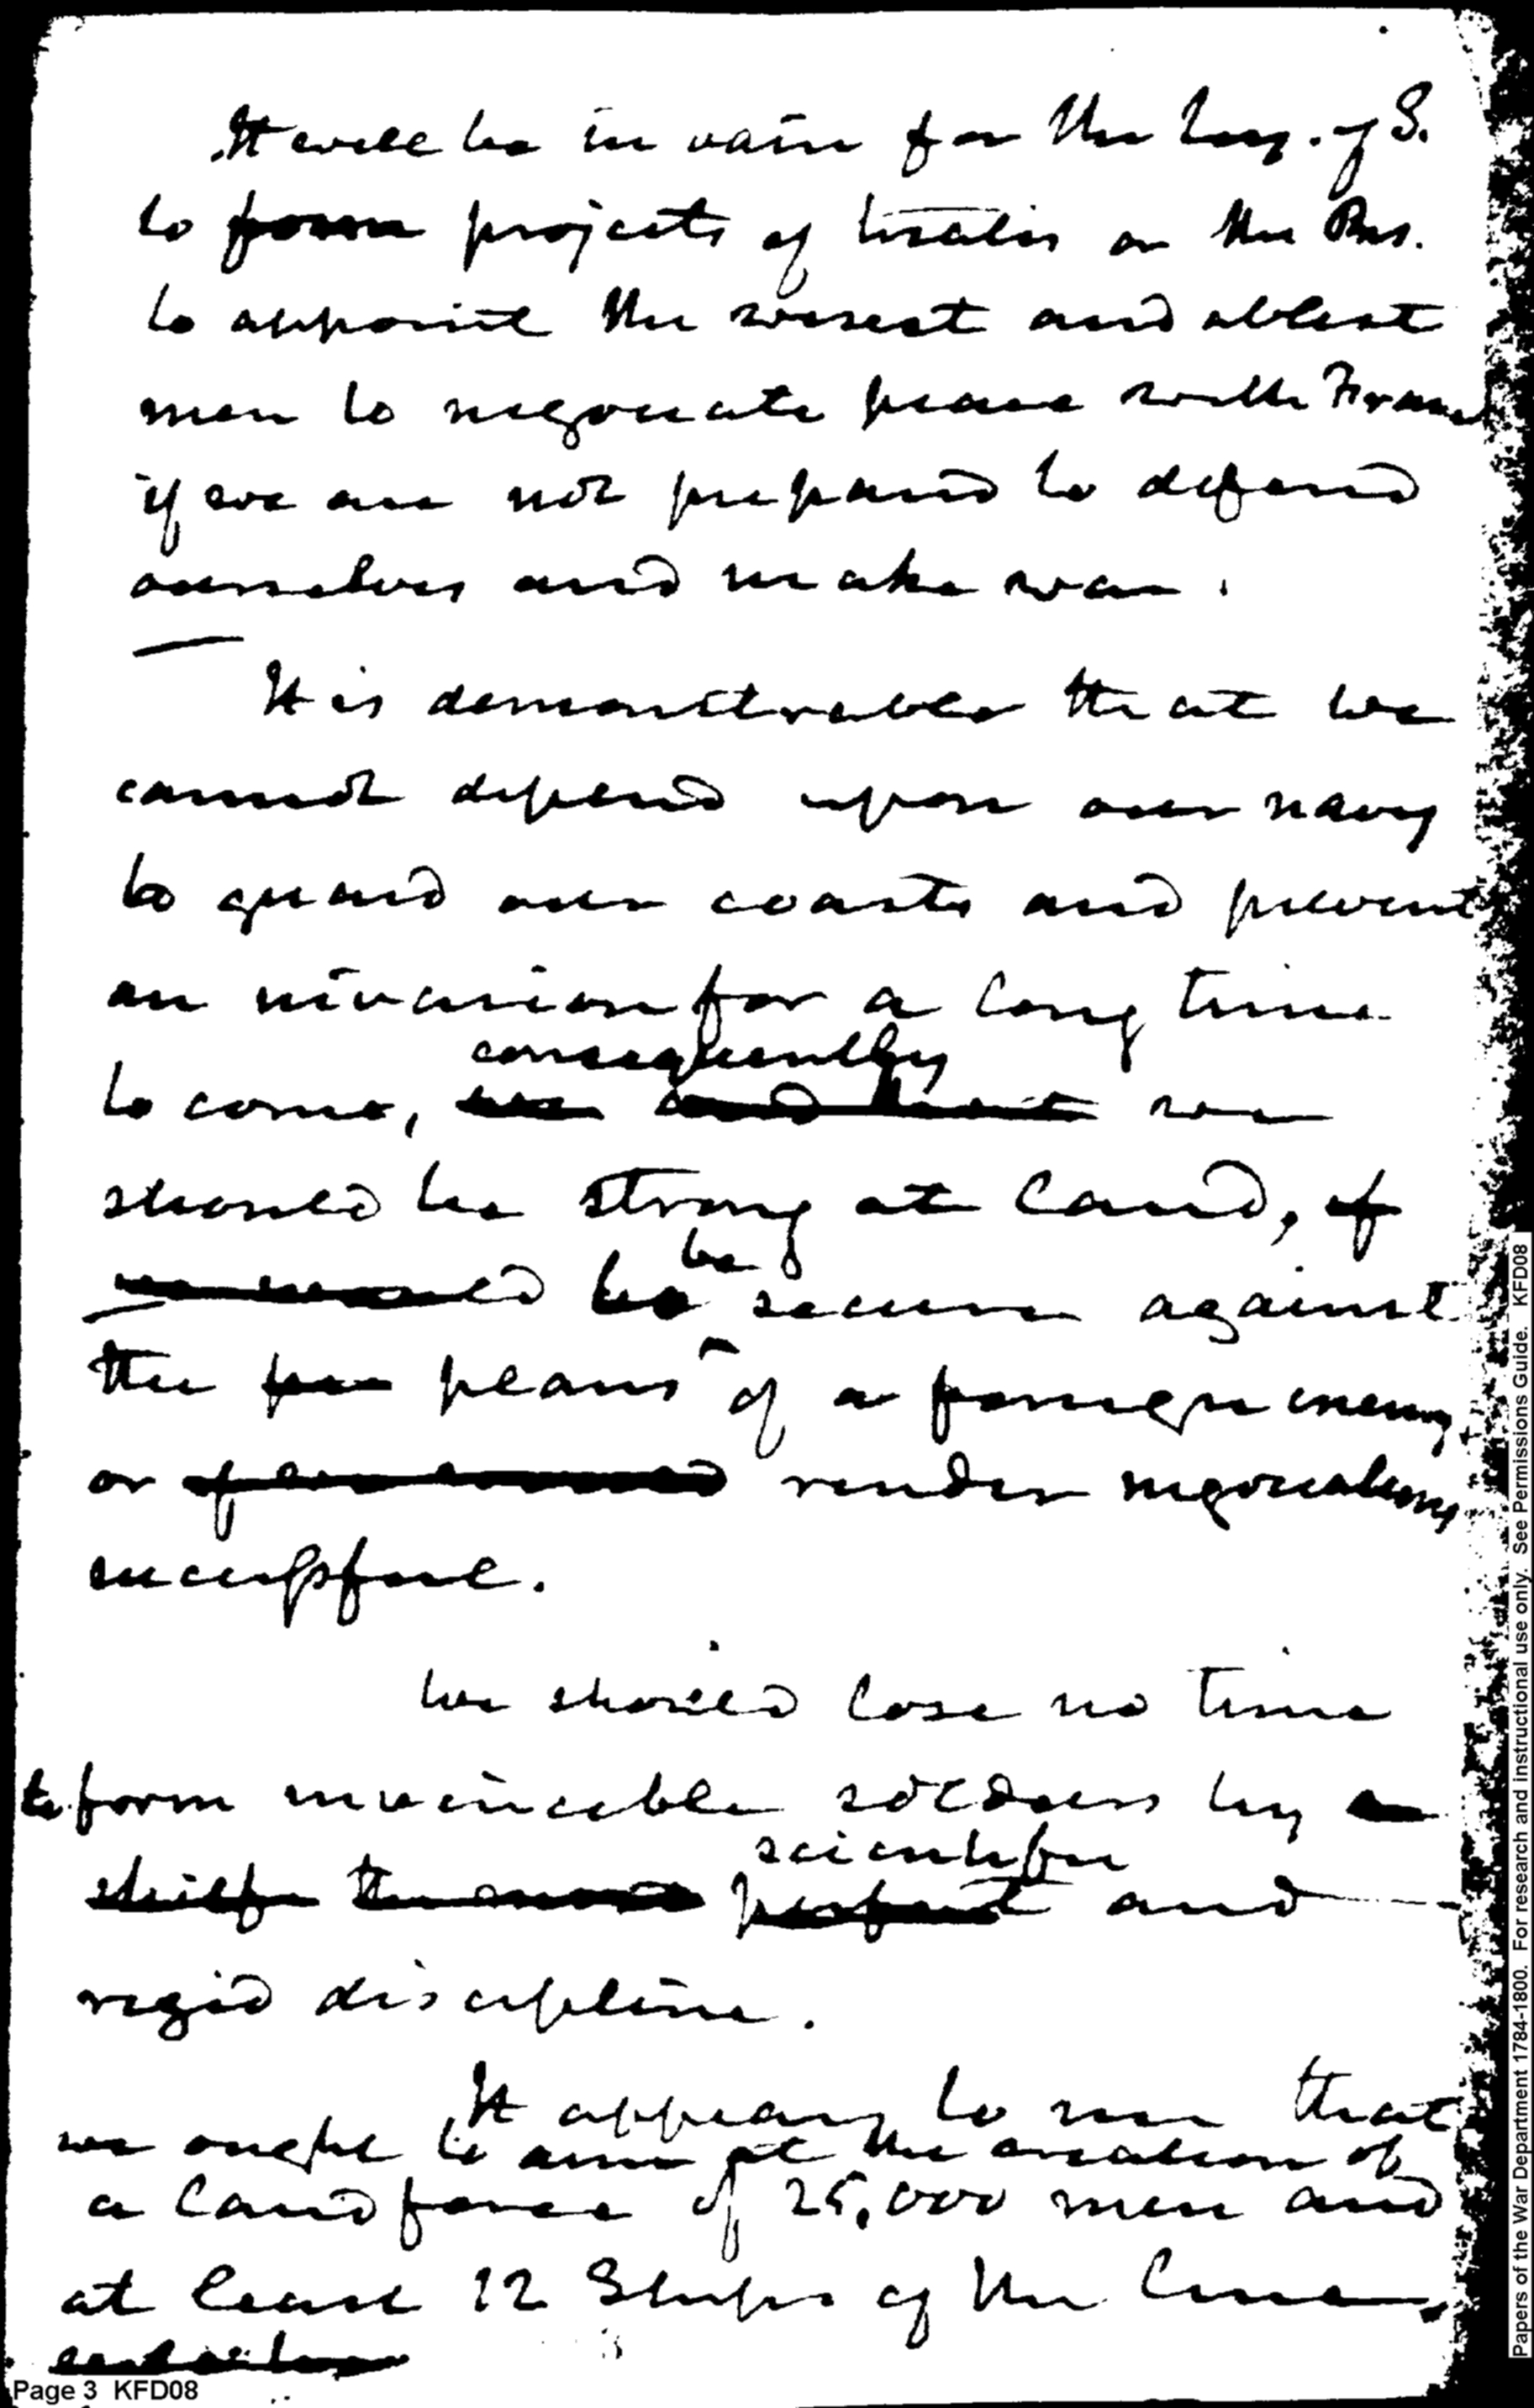 It will be in vain for the Secy. of S.
to form projects of treaties or the Pres.
to appoint the wisest and ablest
men to negociate peace with France
if we are not prepared to defend
ourselves and make war.
It is demonstrable that we
cannot depend upon our navy
to guard our coasts and prevent
an invasion for a long time
consequently
to come, we and that we
should be strong at land, if
be
we would be secure against
the plans of a foreign enemy
or render negociations
successful.
We should lose no time
to form invincible soldiers by a
scientific
perfect and
rigid discipline.
It appears to me that
we ought to aim at the creation of
a land force of 25,000 men and
at least 12 Ships of the Line.
Page 3 KFD08
Papers of the War Department 1784-1800. For research and instructional use only. See Permissions Guide. KFD08